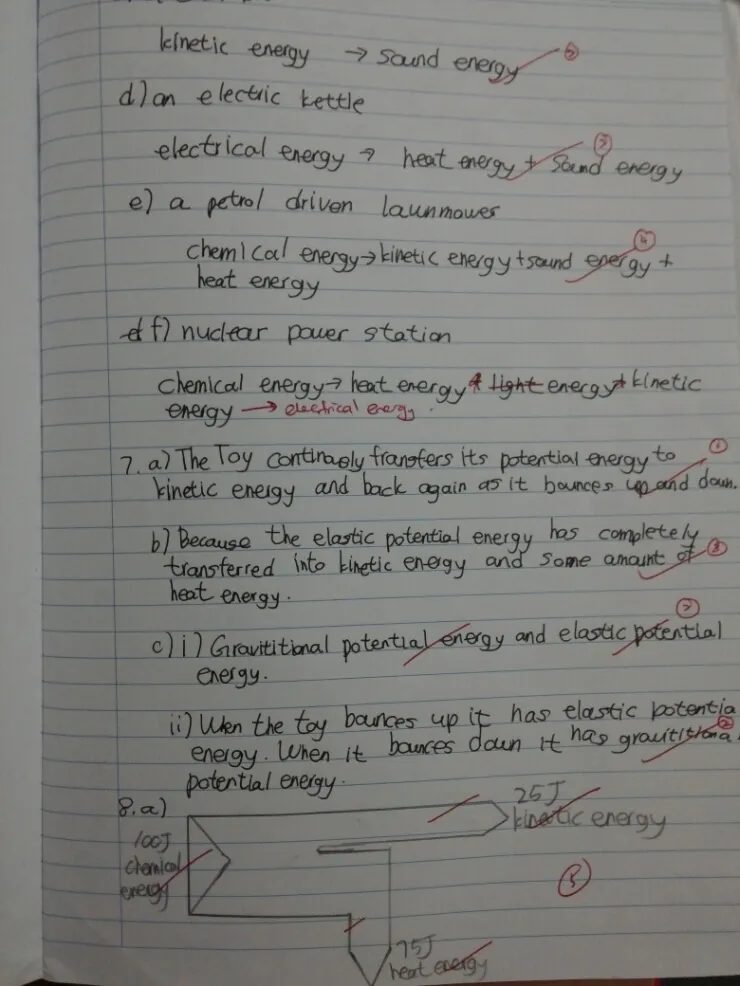 kinetic energy → sound energy
d) an electric kettle
electrical energy → heat energy + sound energy
e) a petrol driven launmower
chemical energy → kinetic energy + sound energy +
heat energy
f) nuclear power station
chemical energy → heat energy light energy + kinetic
energy → electrical energy.
7. a) The Toy continuely transfers its potential energy to
kinetic energy and back again as it bounces up and down.
b) Because the elastic potential energy has completely
transferred into kinetic energy and some amount of
heat energy.
c) i) Gravititional potential energy and elastic potential
energy.
ii) Wen the toy bounces up it has elastic potentia
energy. When it bounces down it has gravititiona
potential energy.
8. a)
25J
kinetic energy
100J
chemical
energy
75J
heat energy